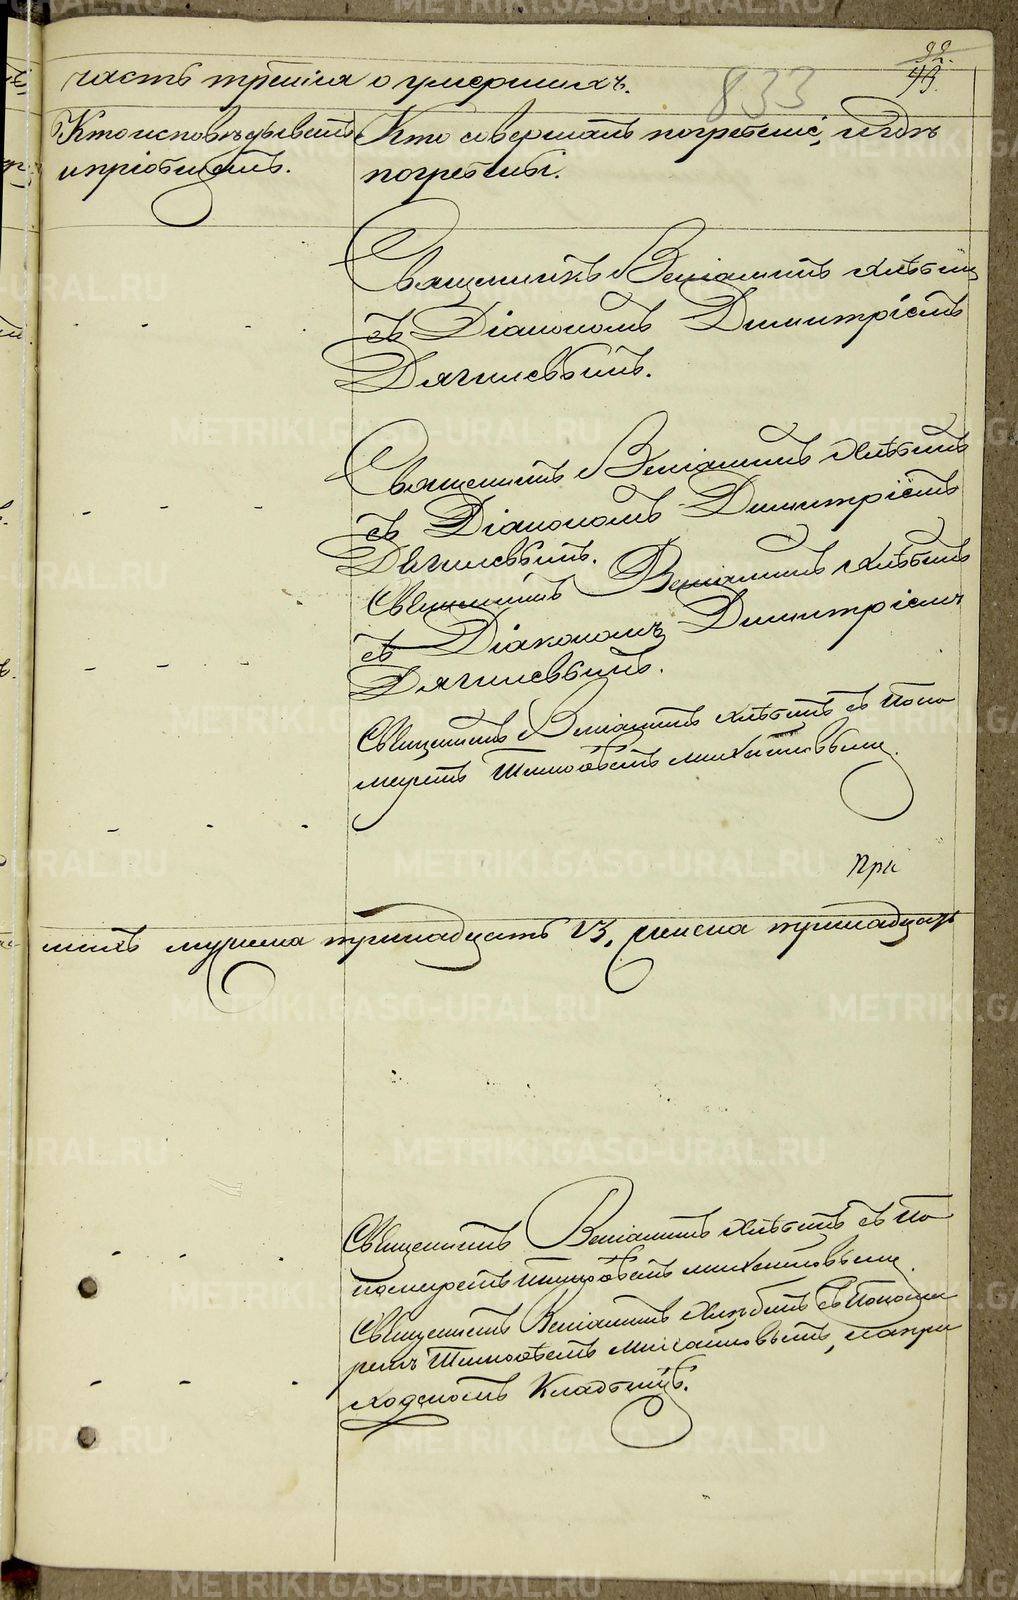 99
49.
833
часть третія о умершихъ.
Кто исповѣдывалъ
и пріобщалъ.
Кто совершалъ погребеніе, и гдѣ
погребены.
Священникъ Веніаминъ Хлѣбинъ
съ Діакономъ Димитріемъ
Дягилевымъ.
Священникъ Веніаминъ Хлѣбинъ
съ Діакономъ Димитріемъ
Дягилевымъ.
Священникъ Веніаминъ Хлѣбинъ
съ Діакономъ Димитріемъ
Дягилевымъ.
Священникъ Веніаминъ Хлѣбинъ съ Поно
маремъ Тимоѳеемъ Михайловымъ.
При
шихъ мужеска тринадцать 13, женска тринадцать
Священникъ Веніаминъ Хлѣбинъ съ По
номаремъ Тимоѳеемъ Михайловымъ.
Священникъ Веніаминъ Хлѣбинъ съ Понома
ремъ Тимоѳеемъ Михайловымъ, на при
ходскомъ Кладбищѣ.
METRIKI.GASO-URAL.RU